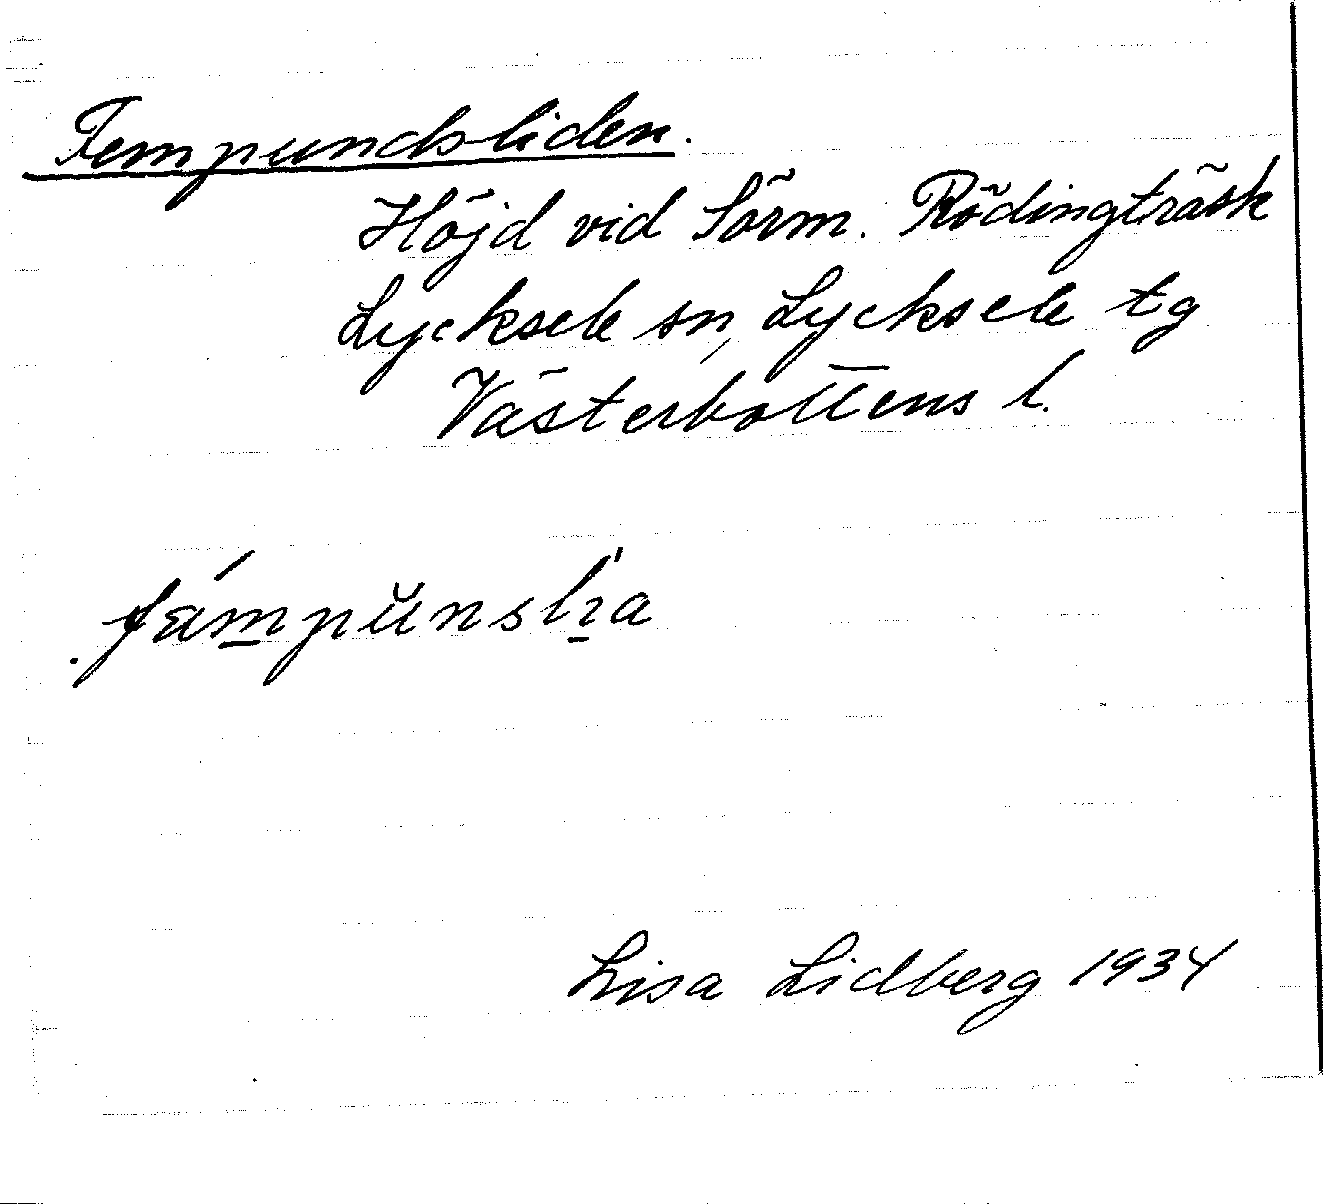 Fempundsliden.
Höjd vid Sörm. Rödingträsk
Lycksele sn, Lycksele tg
Västerbottens l.
Lisa Lidberg 1934